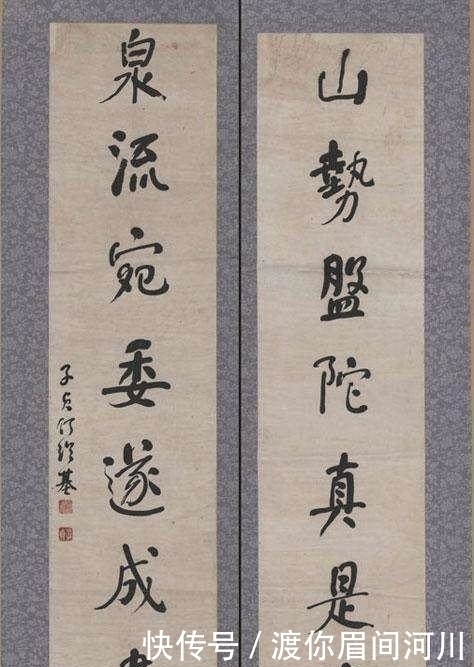 山勢盤陀真是
泉流宛委遂成
子貞何紹基
快传号 / 渡你眉间河川